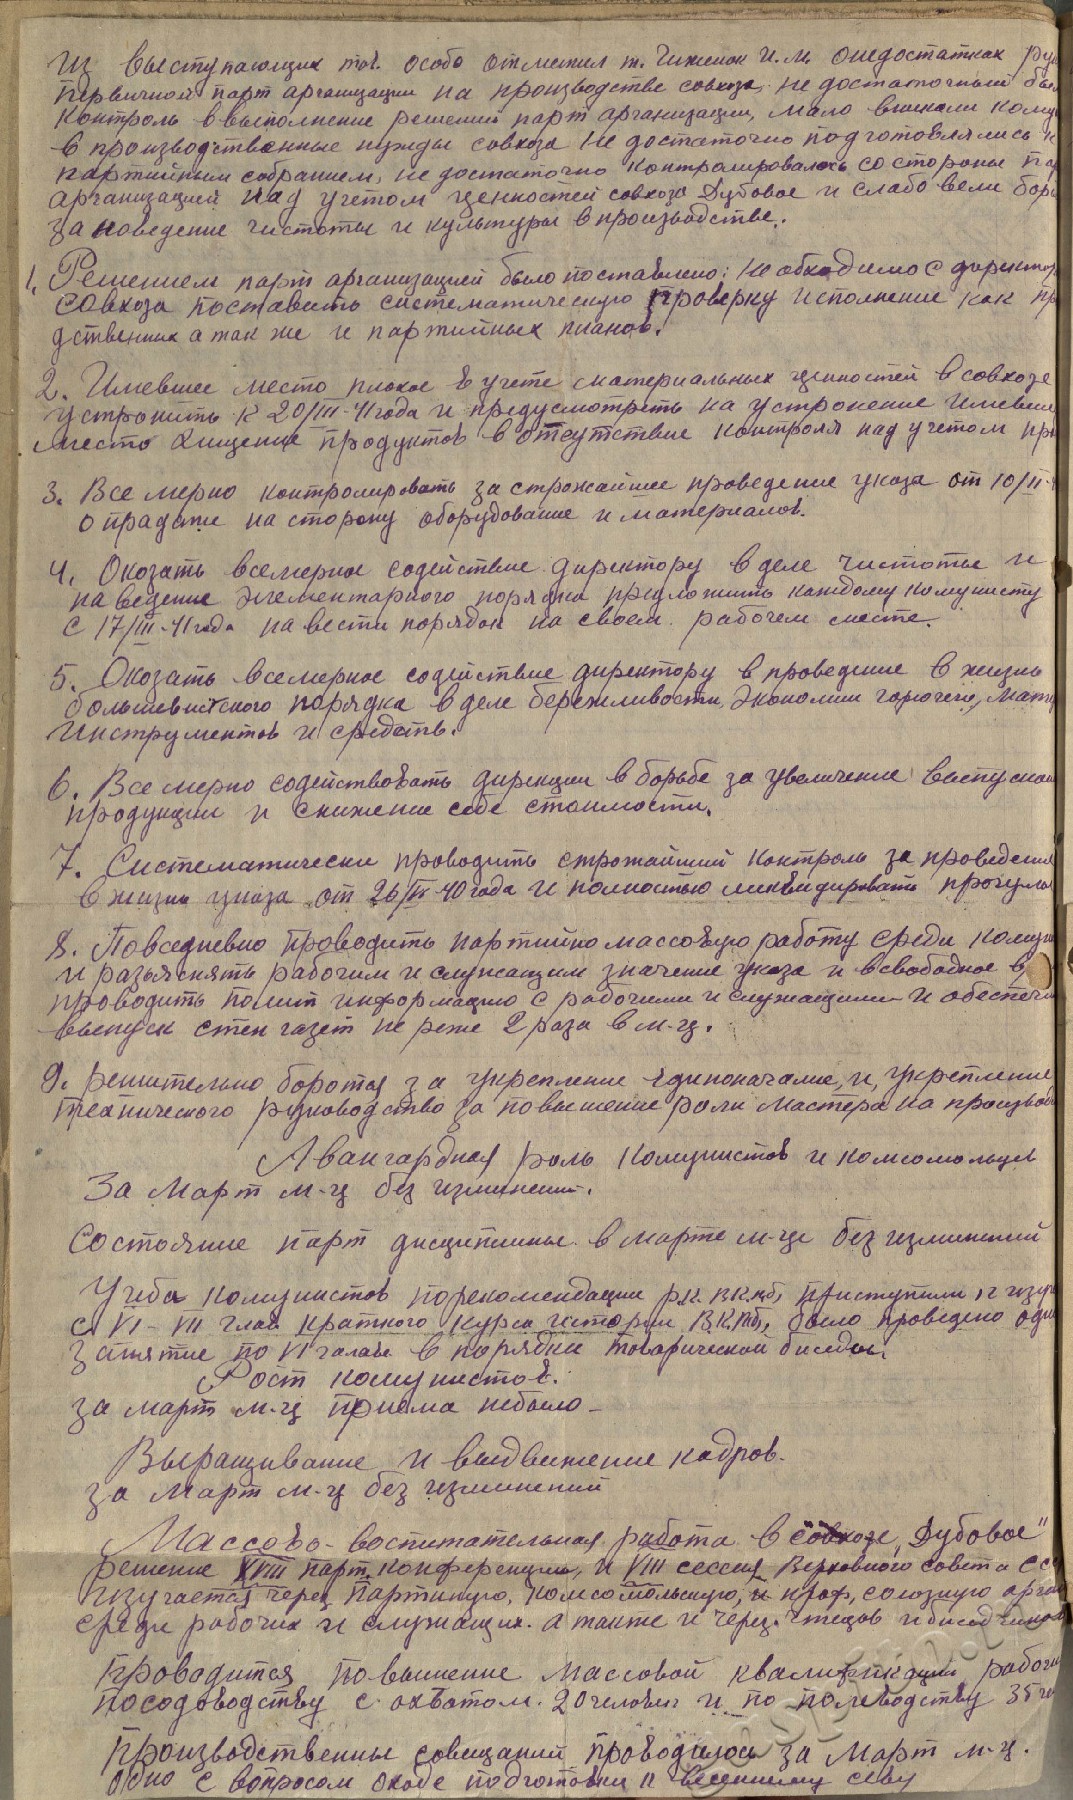 Из выступающих тов. особо отметил т. Чиженок И.М. о недостатках
первичной парт арганизации на производстве совхоза, не достаточный был
контроль в выполнение решений парт арганизации, мало вникали
в производственные нужды совхоза не достаточно подготовлялись к
партийным собранием, не достаточно контролировалось со стороны
арганизацией над учетом ценностей совхоза Дубовое и слабо вели
за наведение чистоты и культуры в производстве.
1. Решением парт арганизацией было поставлено: Необходимо с
совхоза поставить систематическую проверку исполнение как
дственных а так же и партийных планов.
2. Имевшее место плохое в учете материальных ценностей в совхозе
устронить к 20/III-41 года и предусмотреть на устронение
место хищение продуктов в отсутствие контроля над учетом
3. Все мерно контролировать за строжайшее проведение указа от 10/II-
о прадаже на сторону оборудование и материалов.
4. Окозать всемерное содействие директору в деле чистоты и
на ведение элементарного порядка предложить каждому комунисту
с 17/III-41 года на вести порядок на своем рабочем месте.
5. Окозать всемерное содействие директору в проведение в жизнь
большевистского порядка в деле бережливости, экономии горючего,
инструментов и средств.
6. Все мерно содействовать дирекции в борьбе за увеличение
продукции и снижение себе стоимости.
7. Систематически проводить строжайший контроль за
в жизнь указа от 26/IV-40 года и полностью ликвидировать
8. Повседневно проводить партийно массовую работу среди
и разьяснять рабочим и служащим значение указа и в свободное
проводить полит информацию с рабочими и служащими и
выпуск стен газет не реже 2 раза в м-ц.
9. решительно боротся за укрепление единоначалие, и, укрепление
технического руководство за повышение роли мастера на
Авангардная роль комунистов и комсомольцев
За март м-ц без изминений.
Состояние парт дисциплины в марте м-це без изминений
Учеба комунистов по рекомендации р.к. В.К.пб, приступили к
с VI-VII глав краткого курса истории В.К.пб, было проведено
занятие по VI главе в порядке товарической беседы.
Рост комунистов.
за март м-ц приема небыло-
Выращивание и выдвижение кадров.
за март м-ц без изминений
Массово-воспитательная работа в совхозе „Дубовое"
решение XVIII парт. конференции, и VIII сессия Верховного совета
изучается через партиную, комсомольскую, и проф, союзную
среди рабочих и служащих. а также и через чтецов и
проводится повышение массовой квалификации
посодоводству с охватом. 20 человек и по полеводству 35
Производственны совещаний проводилось за март м-ц.
одно с вопросом о ходе подготовки к весеннему севу